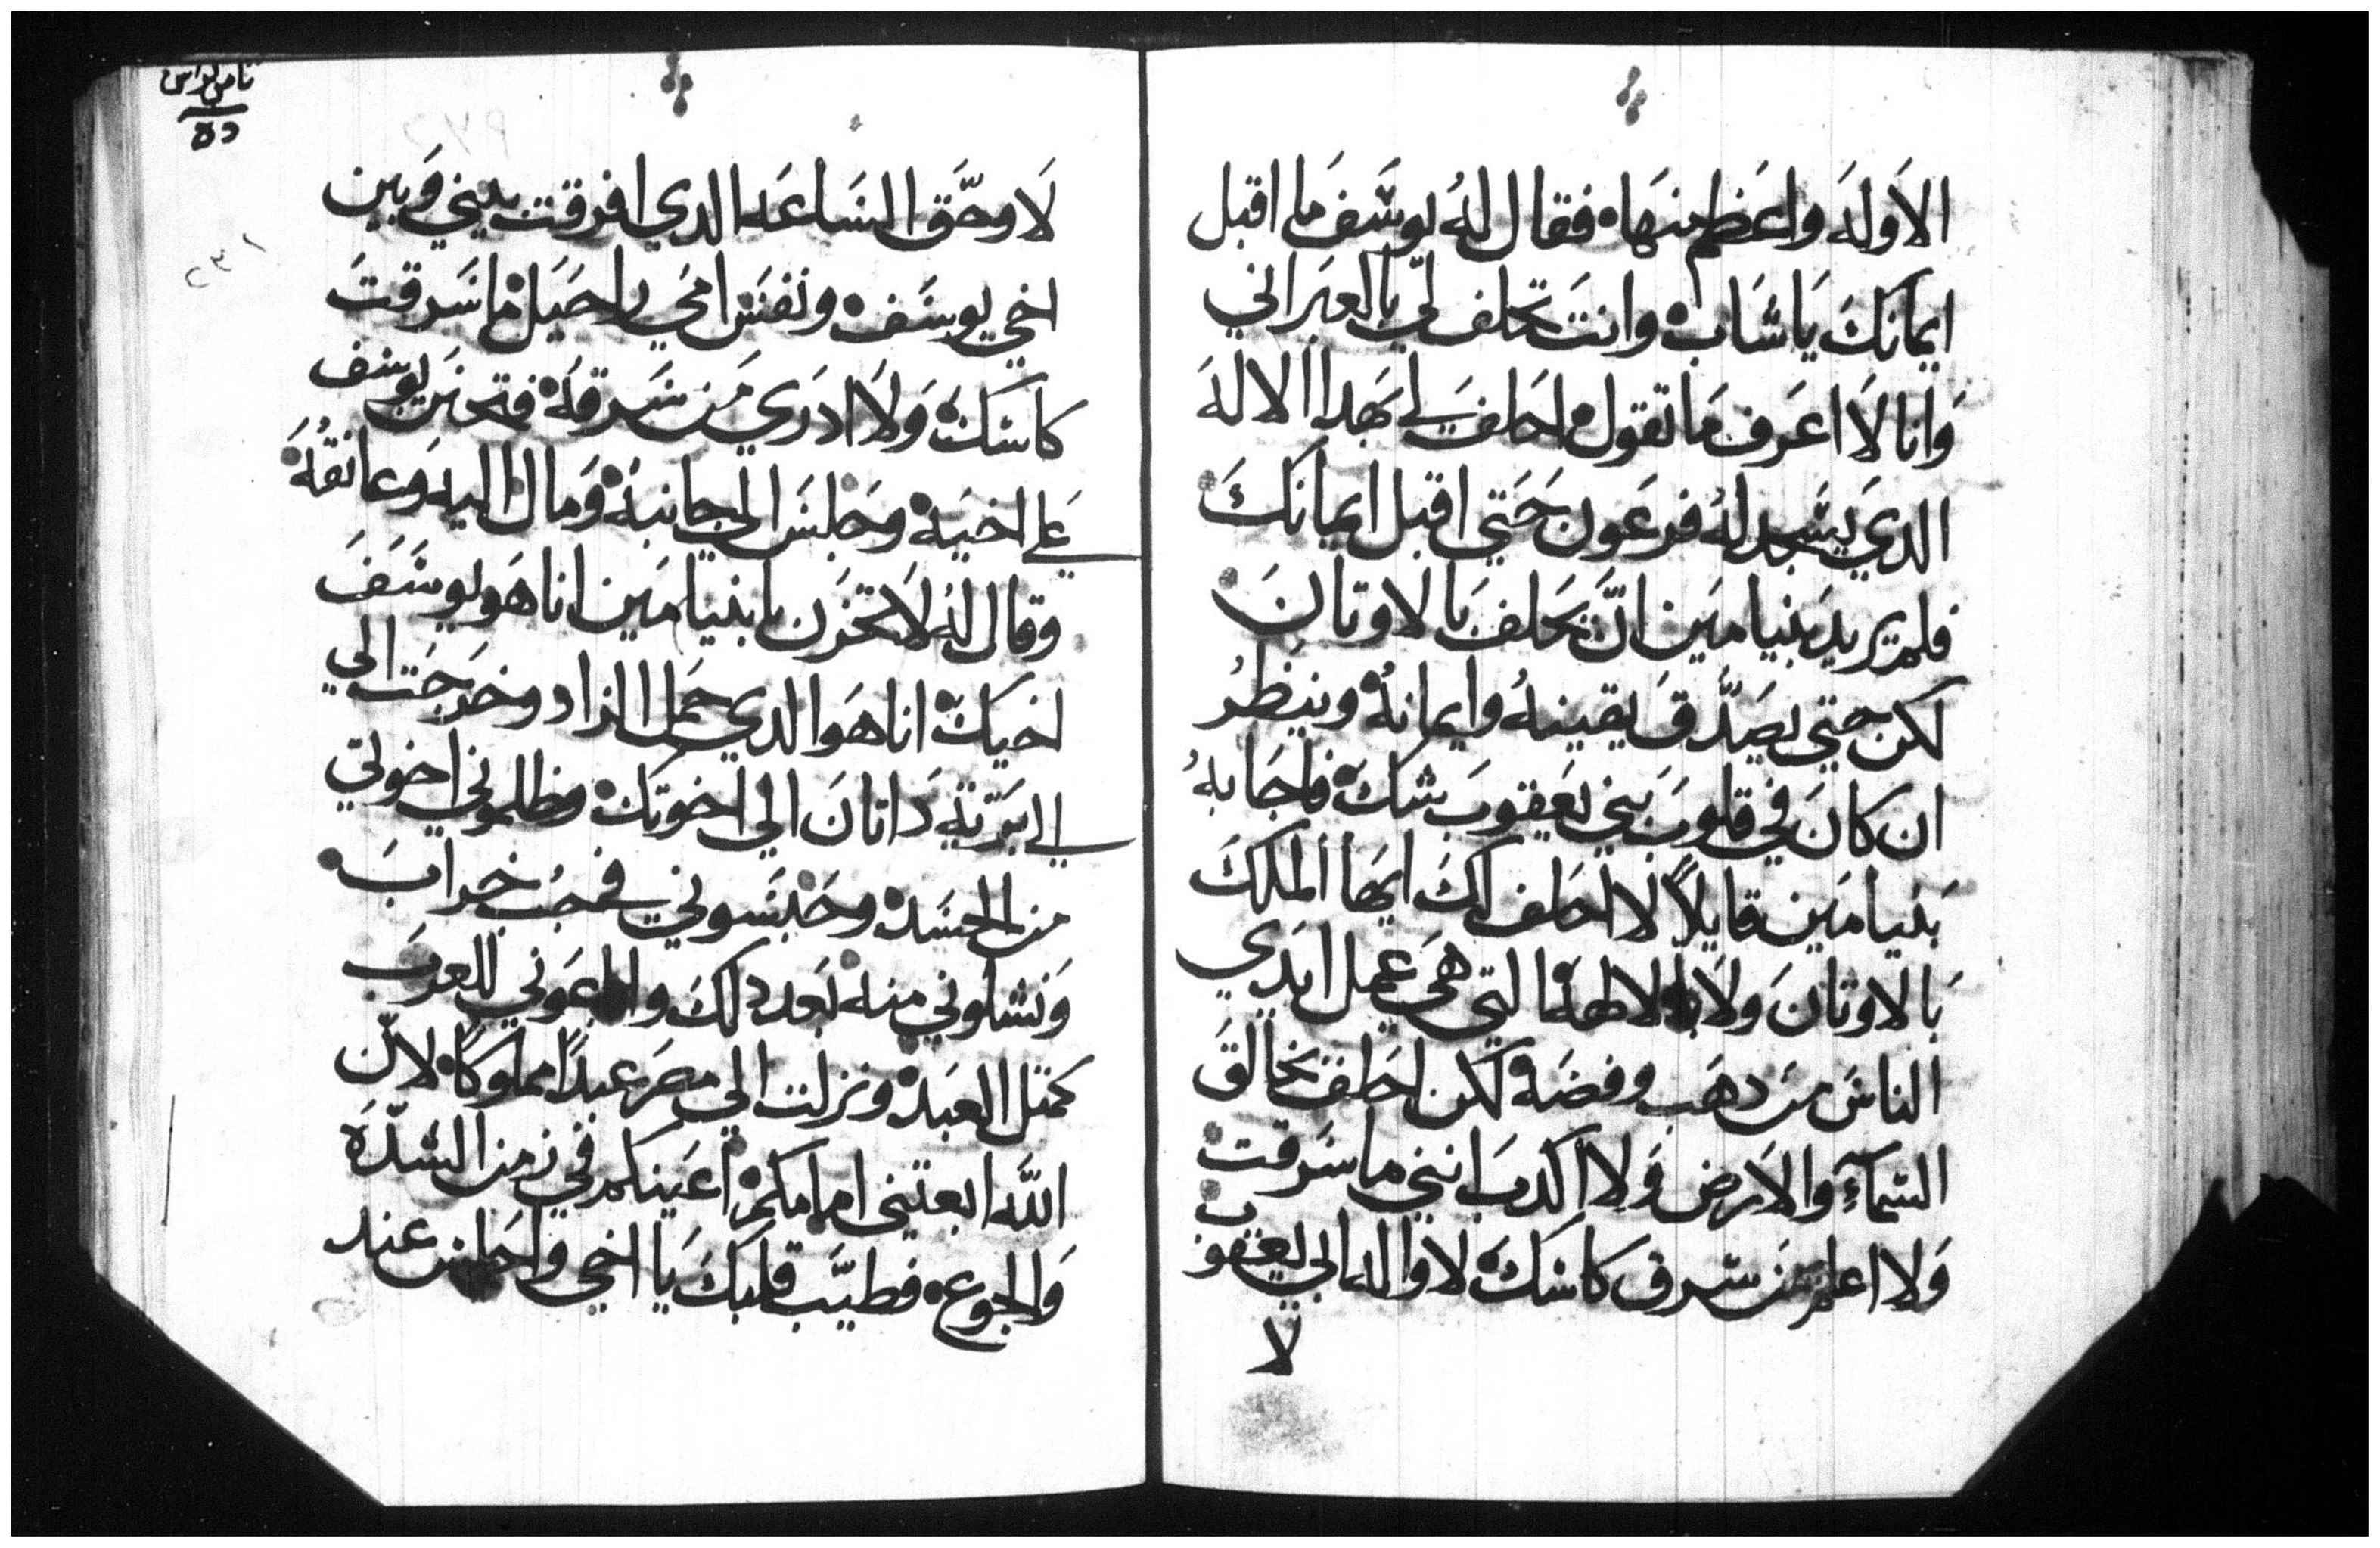 الاوله واعظم منها فقال له يوسف ما اقبل
ايمانك يا شاب وانت تحلف لي بالعبراني
وانا لا اعرف ما تقول احلف لي بهدا الاله
الدي يسجد له فرعون حتي اقبل ايمانك
فلم يريد بنيامين ان يحلف بالاوتان
لكن حتي يصدق يقينه وايمانه وينظر
ان كان في قلوب بني يعقوب شك فاجابه
بنيامين قايلاً لا احلف لك ايها الملك
بالاوتان ولا بالالهه التي هي عمل ايدي
الناس من دهب وفضه لكن احلف بخالق
السمآء والارض ولا اكدب انني ما سرقت
ولا اعلم من سرق كاسك لا واله ابي يعقوب
لا
ده
٢٣١
لا وحق الساعه الدي افرقت بيني وبين
اخي يوسف ونفس امي راحيل ما سرقت
كاسك ولا ادري من سرقه فتحنن يوسف
علي اخيه وجلس الي جانبه ومال اليه وعانقه
وقال له لا تحزن يا بنيامين انا هو يوسف
اخيك انا هو الدي حمل الزاد وخرجت الي
الي برية داتان الي اخوتك وظلموني اخوتي
من الحسد وحبسوني في جب خراب
ونشلوني منه بعد دلك وابا عوني للعرب
كمتل العبد ونزلت الي مصر عبداً مملوكاً لان
الله ابعتني امامكم اعينكم في زمن الشده
والجوع فطيب قلبك يا اخي واجلس عند